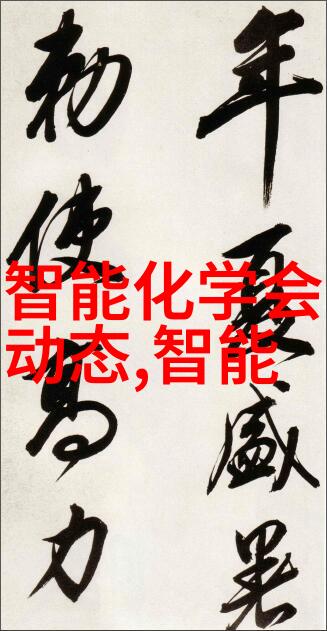 年夏盛暑
勅使高力
智能化学会
动态,智能